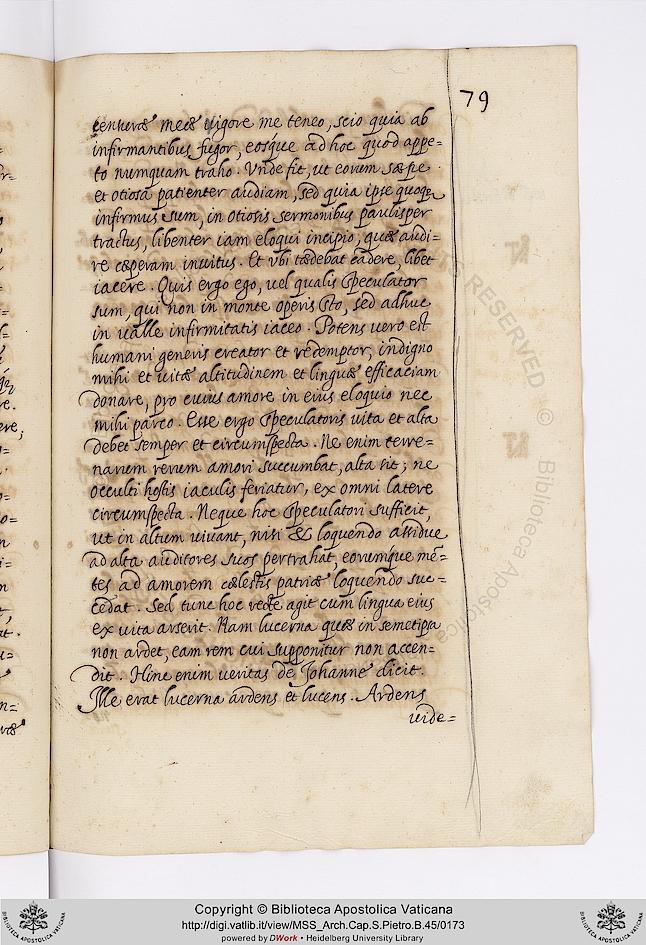 79
censuræ meæ uigore me teneo, scio quia ab
infirmantibus fugor, eosque ad hoc quod appe=
to numquam traho. Unde fit, ut eorum sæpe
et otiosa patienter audiam, sed quia ipse quoque
infirmus sum, in otiosis sermonibus paulisper
tractus, libenter iam eloqui incipio, quæ audi=
re cæperam inuitus. Et ubi tædebat cadere, libet
iacere. Quis ergo ego, uel qualis speculator
sum, qui non in monte operis sto, sed adhuc
in ualle infirmitatis iaceo. Potens uero est
humani generis creator et redemptor, indigno
mihi et uitæ altitudinem et linguæ efficaciam
donare, pro cuius amore in eius eloquio nec
mihi parco. Esse ergo speculatoris uita et alta
debet semper et circumspecta. Ne enim terre=
narum rerum amori succumbat, alta sit; ne
occulti hostis iaculis feriatur, ex omni latere
circumspecta. Neque hoc speculatori sufficit,
ut in altum uiuant, nisi & loquendo assidue
ad alta auditores suos pertrahat, eorumque mē=
tes ad amorem cælestis patriæ loquendo suc=
cedat. Sed tunc hoc recte agit cum lingua eius
ex uita arserit. Nam lucerna quæ in semetipsa
non ardet, eam rem cui supponitur non accen=
dit. Hinc enim ueritas de Johanne dicit.
Ille erat lucerna ardens et lucens. Ardens
uide=
RESERVED © Biblioteca Apostolica
Copyright © Biblioteca Apostolica Vaticana
http://digi.vatlib.it/view/MSS_Arch.Cap.S.Pietro.B.45/0173
powered by DWork • Heidelberg University Library